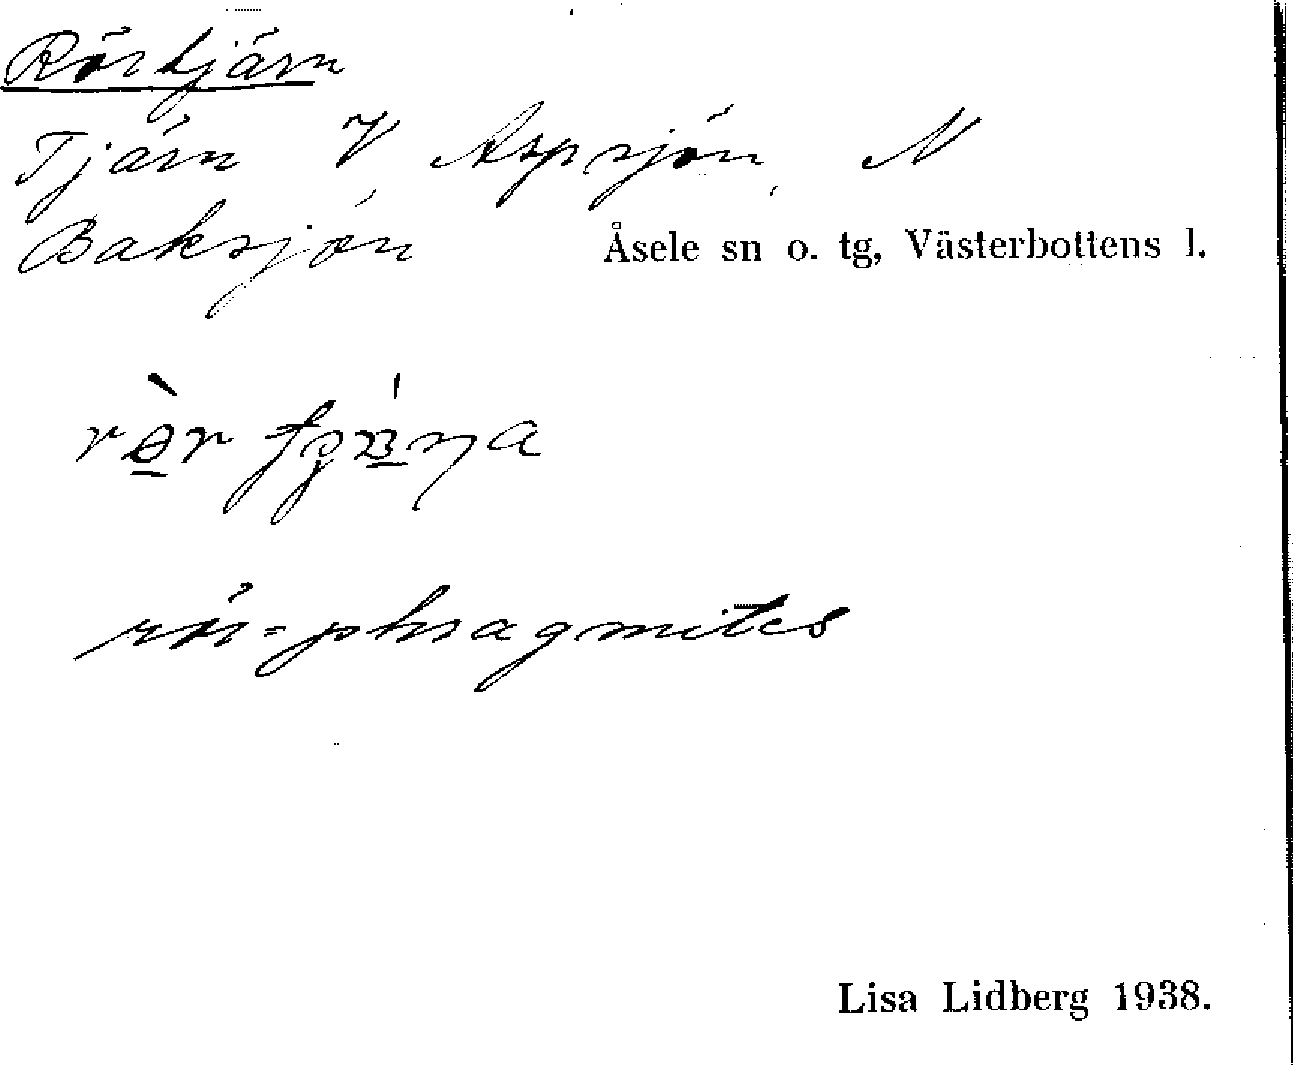 Rörtjärn
Tjärn V Aspsjön, N
Baksjön Åsele sn o. tg, Västerbottens l.
rör=phragmites
Lisa Lidberg 1938.